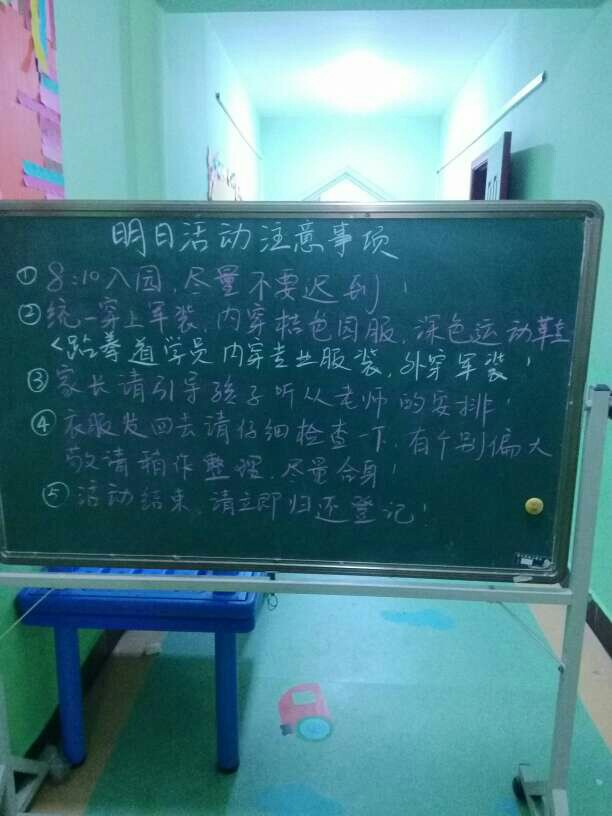 明日活动注意事项
①8:10入园,尽量不要迟到!
②统一穿上军装,内穿桔色园服,深色运动鞋
<跆拳道学员内穿专业服装,外穿军装!
③家长请引导孩子听从老师的安排!
④衣服发回去请仔细检查一下,有个别偏大
敬请稍作整理,尽量合身!
⑤活动结束,请立即归还登记!